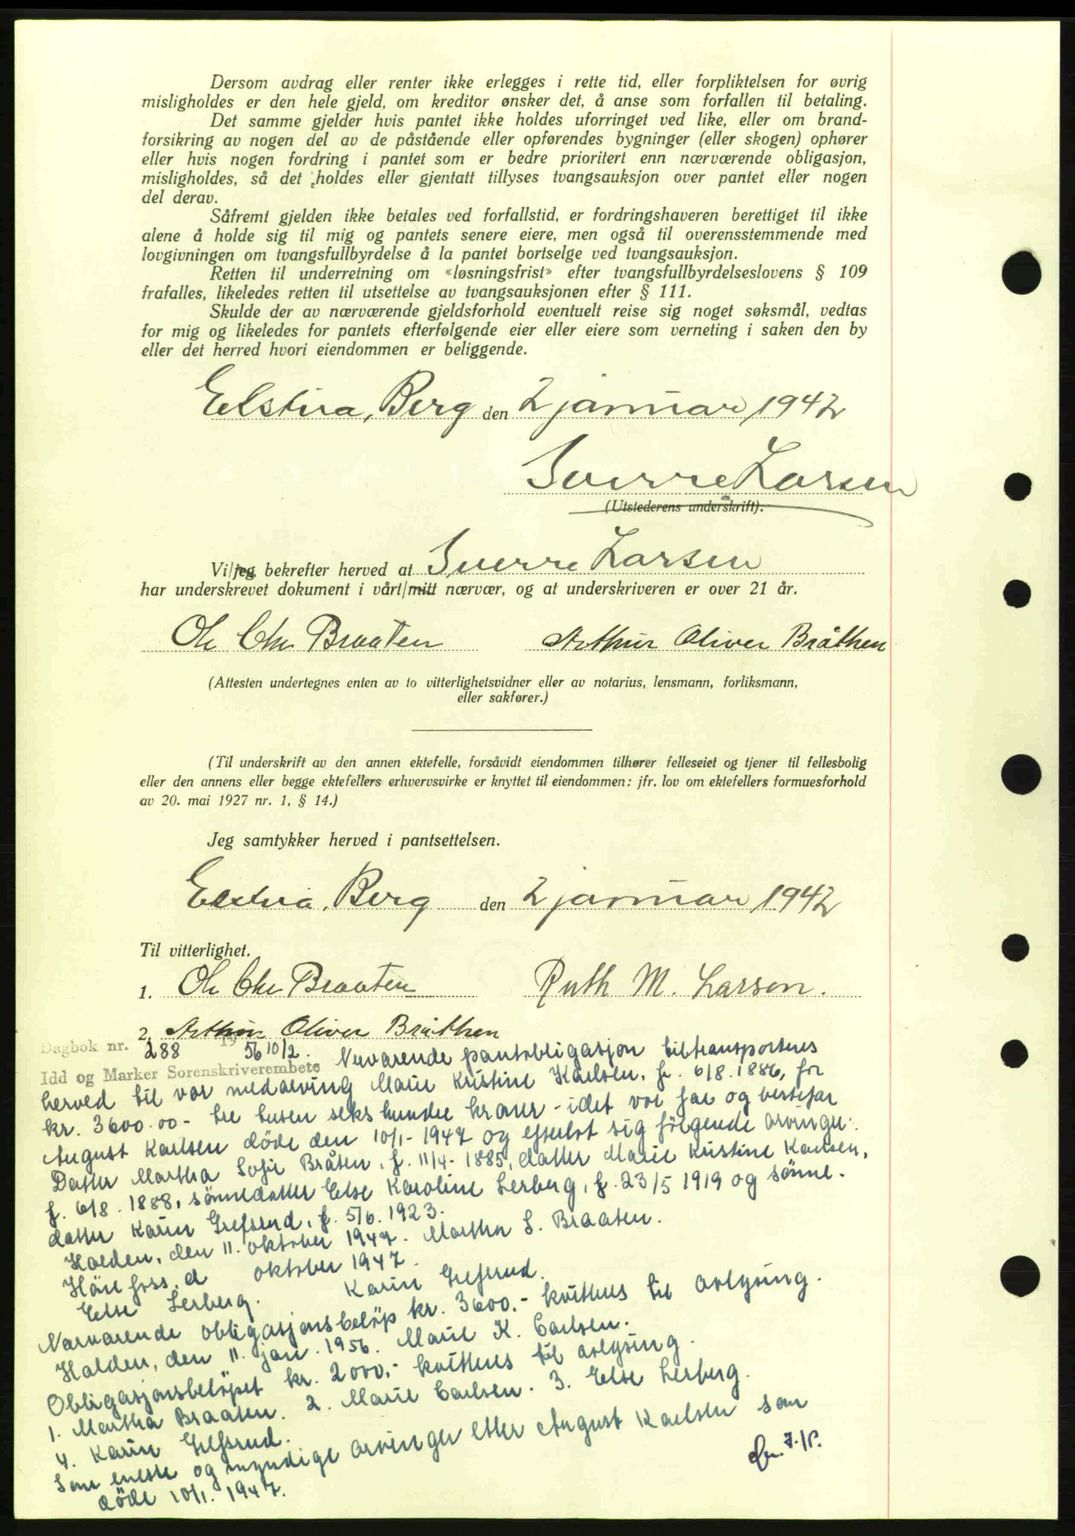 Dersom avdrag eller renter ikke erlegges i rette tid, eller forpliktelsen for øvrig
misligholdes er den hele gjeld, om kreditor ønsker det, å anse som forfallen til betaling.
Det samme gjelder hvis pantet ikke holdes uforringet ved like, eller om brand-
forsikring av nogen del av de påstående eller opførendes bygninger (eller skogen) ophører
eller hvis nogen fordring i pantet som er bedre prioritert enn nærværende obligasjon,
misligholdes, så det holdes eller gjentatt tillyses tvangsauksjon over pantet eller nogen
del derav.
Såfremt gjelden ikke betales ved forfallstid, er fordringshaveren berettiget til ikke
alene å holde sig til mig og pantets senere eiere, men også til overensstemmende med
lovgivningen om tvangsfullbyrdelse å la pantet bortselge ved tvangsauksjon.
Retten til underretning om «løsningsfrist» efter tvangsfullbyrdelseslovens § 109
frafalles, likeledes retten til utsettelse av tvangsauksjonen efter § 111.
Skulde der av nærværende gjeldsforhold eventuelt reise sig noget søksmål, vedtas
for mig og likeledes for pantets efterfølgende eier eller eiere som verneting i saken den by
eller det herred hvori eiendommen er beliggende.
Berg den 2 januar 1942
Sverre Larsen
(Utstederens underskrift).
Vi/jeg bekrefter herved at Sverre Larsen
har underskrevet dokument i vårt/mitt nærvær, og at underskriveren er over 21 år.
Ole Chr Braaten Arthur Oliver Bråthen
(Attesten undertegnes enten av to vitterlighetsvidner eller av notarius, lensmann, forliksmann,
eller sakfører.)
(Til underskrift av den annen ektefelle, forsåvidt eiendommen tilhører felleseiet og tjener til fellesbolig
eller den annens eller begge ektefellers erhvervsvirke er knyttet til eiendommen: jfr. lov om ektefellers formuesforhold
av 20. mai 1927 nr. 1, § 14.)
Jeg samtykker herved i pantsettelsen.
Berg den 2 januar 1942
Til vitterlighet.
1. Ole Chr Braaten Ruth M. Larsen.
2. Arthur Oliver Bråthen
Dagbok nr. 288 19 56 10/2. Nærværende pantobligasjon transporteres
Idd og Marker Sorenskriverembete
herved til vår medarving Marie Kristine Karlsen, f. 6/8. 1886, for
kr. 3600.00 - tre tusen seks hundre kroner - idet vor far og bestefar
August Karlsen døde den 10/1-1947 og efterlot sig følgende arvinger:
Datter Martha Sofie Bråten, f. 11/4-1885, datter Marie Kristine Karlsen,
f. 6/8. 1888, sønnedatter Else Karoline Lerberg, f. 23/5 1919 og sønne-
datter Karin Grefsrud, f. 5/6. 1923.
Halden, den 11. oktober 1947. Martha S. Braaten.
Hønefoss, d oktober 1947.
Else Lerberg. Karin Grefsrud.
Nærværende obligasjonsbeløp kr. 3600.- kvitteres til avlysning.
Halden, den 11. jan. 1956. Marie K. Carlsen.
Obligasjonsbeløpet kr. 2000.- kvitteres til avlysning.
1. Martha Braaten. 2. Marie Carlsen. 3. Else Lerberg.
4. Karin Grefsrud.
Som eneste og myndige arvinger etter August Karlsen som
døde 10/1. 1947.